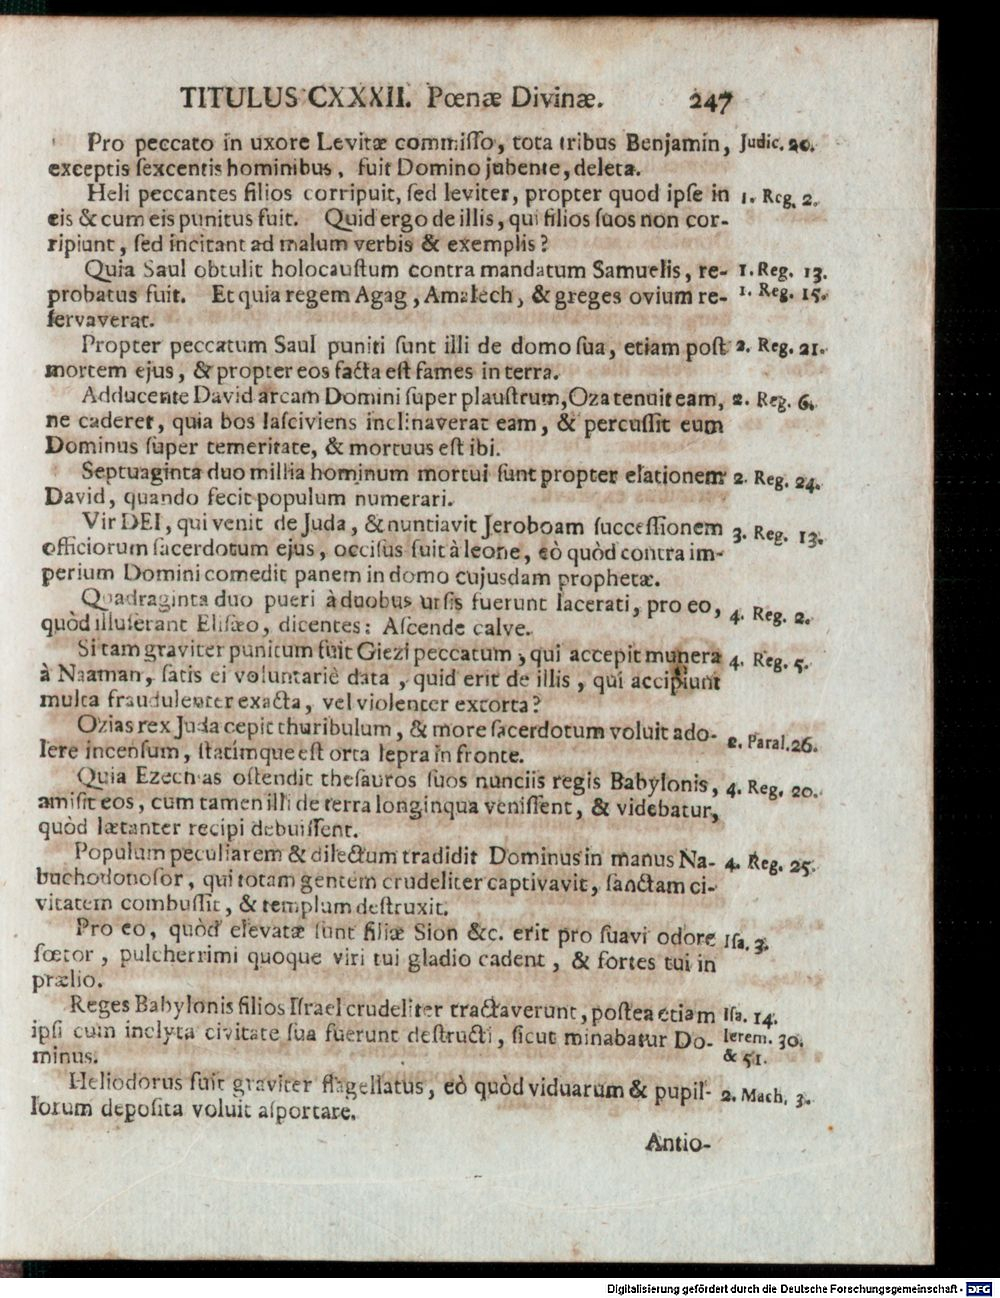 TITULUS CXXXII. Pœnæ Divinæ. 247
Pro peccato in uxore Levitæ commiſſo, tota tribus Benjamin, Judic. 20.
exceptis ſexcentis hominibus, fuit Domino jubente, deleta.
Heli peccantes filios corripuit, ſed leviter, propter quod ipſe in 1. Reg. 2.
eis & cum eis punitus fuit. Quid ergo de illis, qui filios ſuos non cor-
ripiunt, ſed incitant ad malum verbis & exemplis?
Quia Saul obtulit holocauſtum contra mandatum Samuelis, re- 1. Reg. 13.
probatus fuit. Et quia regem Agag, Amalech, & greges ovium re- 1. Reg. 15.
ſervaverat.
Propter peccatum Saul puniti ſunt illi de domo ſua, etiam poſt 2. Reg. 21.
mortem ejus, & propter eos facta eſt fames in terra.
Adducente David arcam Domini ſuper plauſtrum, Oza tenuit eam, 2. Reg. 6.
ne caderet, quia bos laſciviens inclinaverat eam, & percuſſit eum
Dominus ſuper temeritate, & mortuus eſt ibi.
Septuaginta duo millia hominum mortui ſunt propter elationem 2. Reg. 24.
David, quando fecit populum numerari.
Vir DEI, qui venit de Juda, & nuntiavit Jeroboam ſucceſſionem 3. Reg. 13.
officiorum ſacerdotum ejus, occiſus fuit à leone, eò quòd contra im-
perium Domini comedit panem in domo cujusdam prophetæ.
Quadraginta duo pueri à duobus urſis fuerunt lacerati, pro eo, 4. Reg. 2.
quòd illuſerant Eliſæo, dicentes: Aſcende calve.
Si tam graviter punitum fuit Giezi peccatum, qui accepit munera 4. Reg. 5.
à Naaman, ſatis ei voluntariè data, quid erit de illis, qui accipiunt
multa fraudulenter exacta, vel violenter extorta?
Ozias rex Juda cepit thuribulum, & more ſacerdotum voluit ado- 2. Paral. 26.
lere incenſum, ſtatimque eſt orta lepra in fronte.
Quia Ezechias oſtendit theſauros ſuos nunciis regis Babylonis, 4. Reg. 20.
amiſit eos, cum tamen illi de terra longinqua veniſſent, & videbatur,
quòd lætanter recipi debuiſſent.
Populum peculiarem & dilectum tradidit Dominus in manus Na- 4. Reg. 25.
buchodonoſor, qui totam gentem crudeliter captivavit, ſanctam ci-
vitatem combuſſit, & templum deſtruxit.
Pro eo, quòd elevatæ ſunt filiæ Sion &c. erit pro ſuavi odore Iſa. 3.
fœtor, pulcherrimi quoque viri tui gladio cadent, & fortes tui in
prælio.
Reges Babylonis filios Iſrael crudeliter tractaverunt, poſtea etiam Iſa. 14.
ipſi cum inclyta civitate ſua fuerunt deſtructi, ſicut minabatur Do- Ierem. 30.
minus. & 51.
Heliodorus fuit graviter flagellatus, eò quòd viduarum & pupil- 2. Mach. 3.
lorum depoſita voluit aſportare.
Antio-
Digitalisierung gefördert durch die Deutsche Forschungsgemeinschaft - DFG